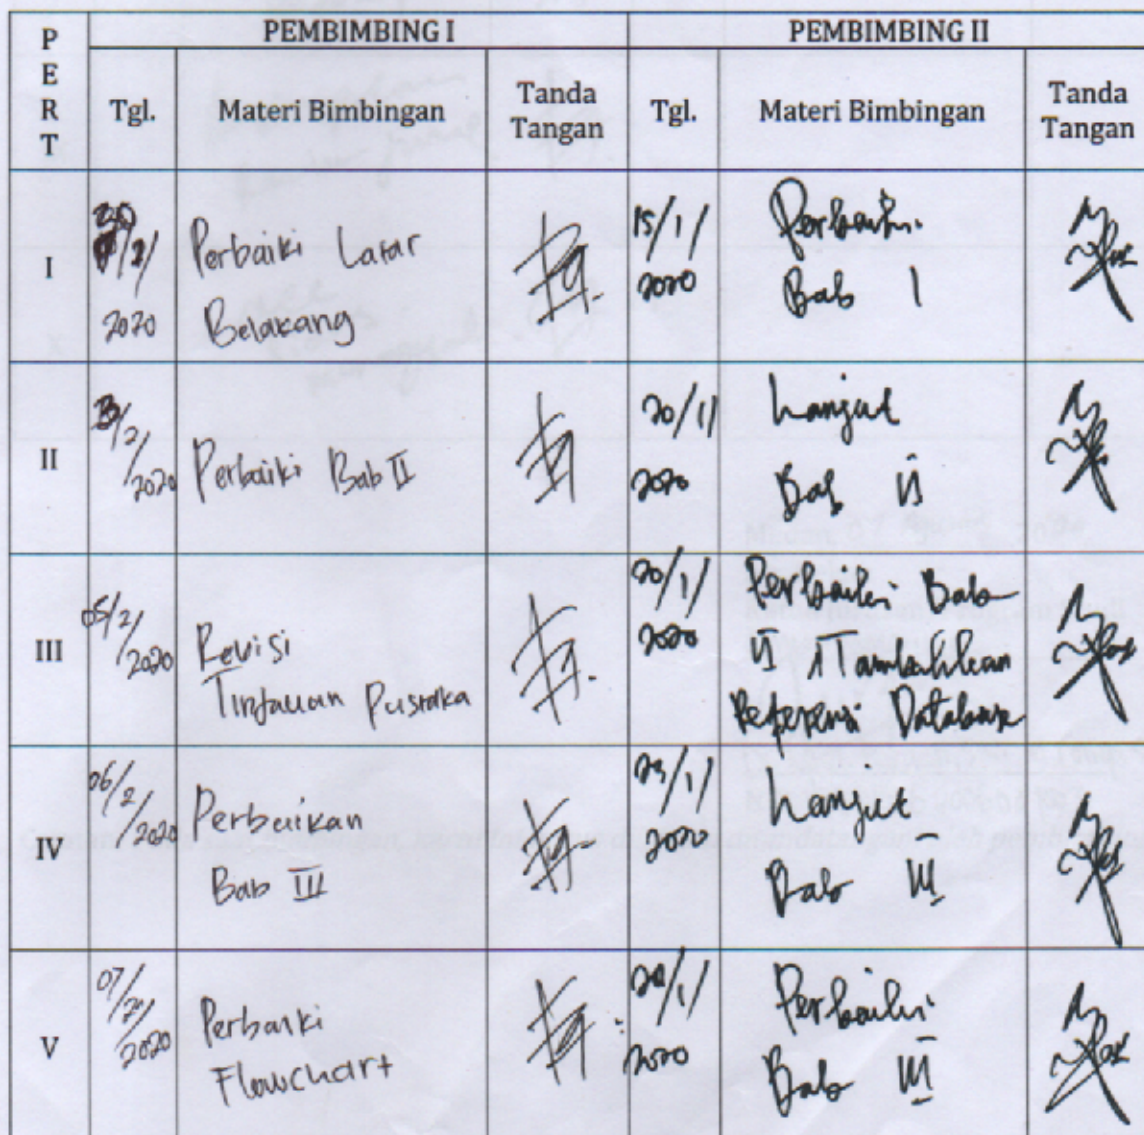 PERT PEMBIMBING I PEMBIMBING II
Tgl. Materi Bimbingan Tanda Tangan Tgl. Materi Bimbingan Tanda Tangan
I
2020
Perbaiki Latar
Belakang
15/1/
2020
Perbaiki
Bab I
II
/2/
2020
Perbaiki Bab II
20/1/
2020
Lanjut
Bab II
III
05/2/
2020
Revisi
Tinjauan Pustaka
20/1/
2020
Perbaiki Bab
II Tambahkan
Referensi Database
IV
06/2/
2020
Perbaikan
Bab III
/1/
2020
Lanjut
Bab III
V
07/2/
2020
Perbaiki
Flowchart
/1/
2020
Perbaiki
Bab III